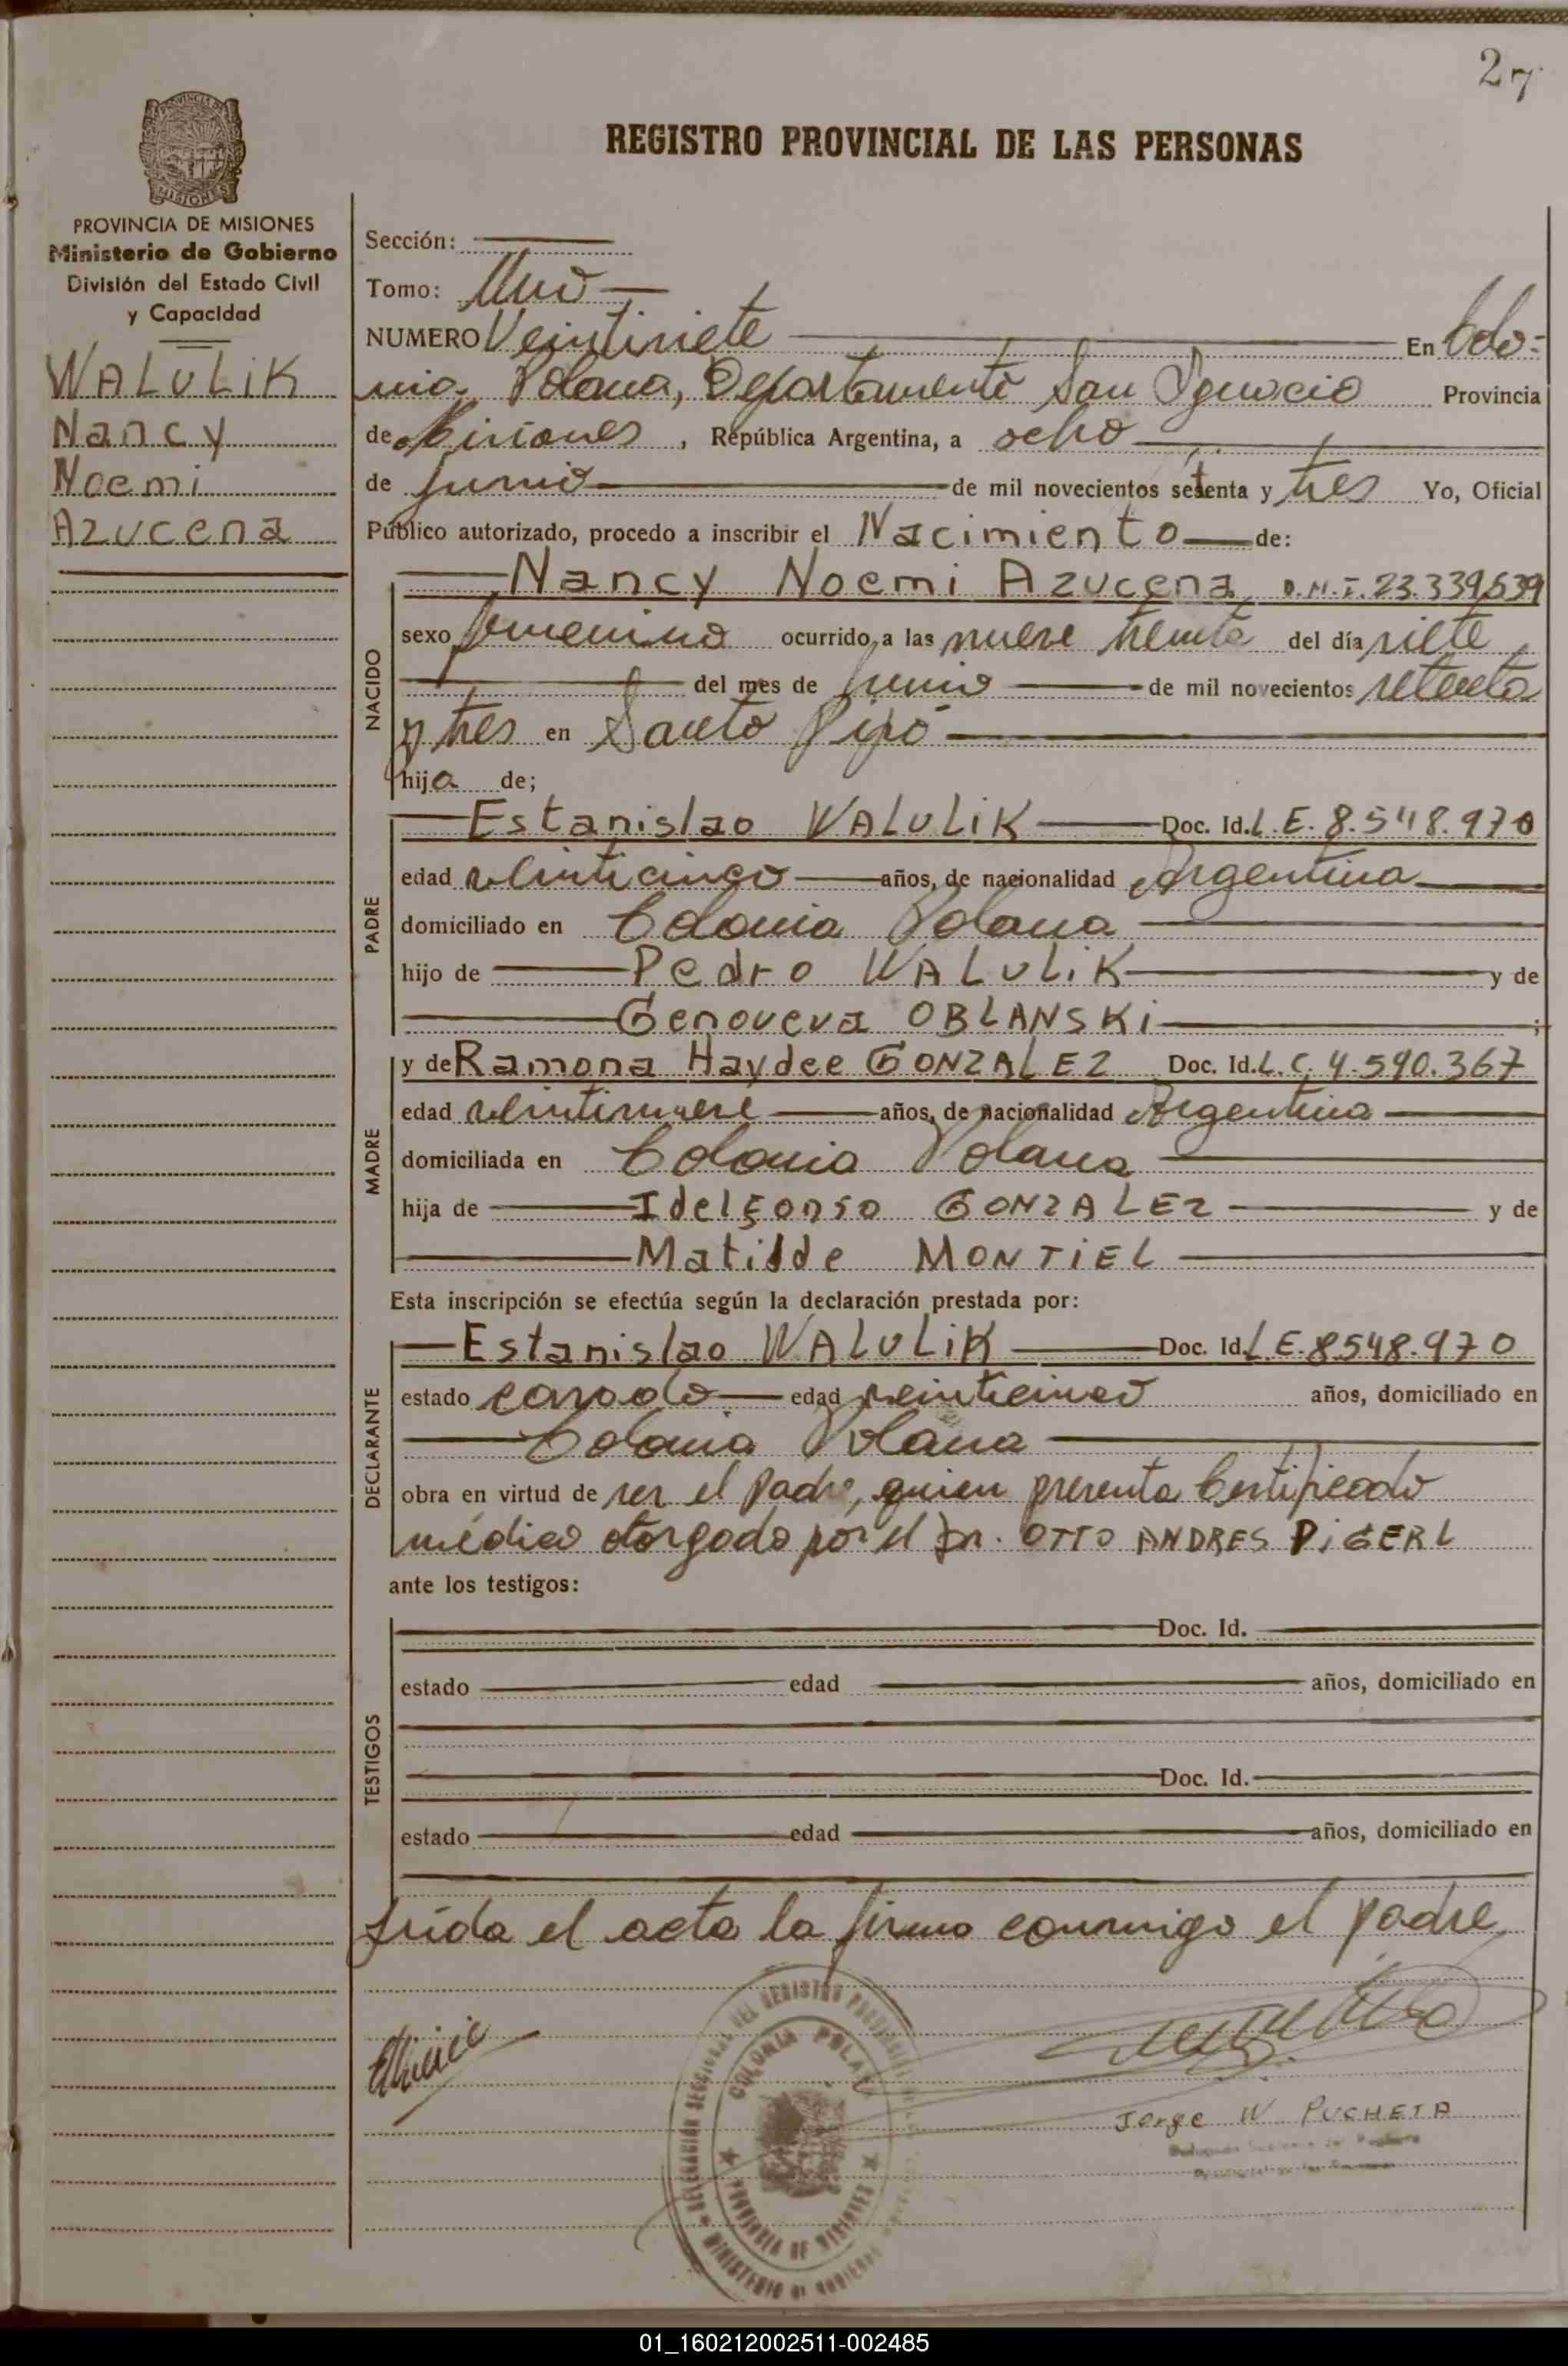 27
REGISTRO PROVINCIAL DE LAS PERSONAS
MISIONES
PROVINCIA DE MISIONES
Ministerio de Gobierno
División del Estado Civil
y Capacidad
WALULIK
Nancy
Noemi
Azucena
Sección:
Tomo: Uno
NUMERO Veintisiete En Colo=
nia Polana, Departamento San Ignacio Provincia
de Misiones, República Argentina, a ocho
de junio de mil novecientos setenta y tres Yo, Oficial
Público autorizado, procedo a inscribir el Nacimiento de:
NACIDO
Nancy Noemi Azucena, D.N.I. 23.339.539
sexo femenino ocurrido, a las nueve treinta del día siete
del mes de junio de mil novecientos setenta
y tres en Santo Pipó
hija de;
PADRE
Estanislao WALULIK Doc. Id. L.E. 8.548.970
edad veinticinco años, de nacionalidad Argentina
domiciliado en Colonia Polana
hijo de Pedro WALULIK y de
Genoveva OBLANSKI ;
MADRE
y de Ramona Haydee GONZALEZ Doc. Id. L.C. 4.590.367
edad veintinueve años, de nacionalidad Argentina
domiciliada en Colonia Polana
hija de Idelfonso GONZALEZ y de
Matilde MONTIEL
Esta inscripción se efectúa según la declaración prestada por:
DECLARANTE
Estanislao WALULIK Doc. Id. L.E. 8548.970
estado casado edad veinticinco años, domiciliado en
Colonia Polana
obra en virtud de ser el padre, quien presenta Certificado
médico otorgado por el Dr. OTTO ANDRES PIGERL
ante los testigos:
TESTIGOS
Doc. Id.
estado edad años, domiciliado en
Doc. Id.
estado edad años, domiciliado en
Leída el acta la firma conmigo el padre
DELEGACIÓN SECCIONAL DEL REGISTRO PROVINCIAL
COLONIA POLANA
PROVINCIA DE MISIONES
MINISTERIO DE GOBIERNO
Jorge W PUCHETA
01_160212002511-002485